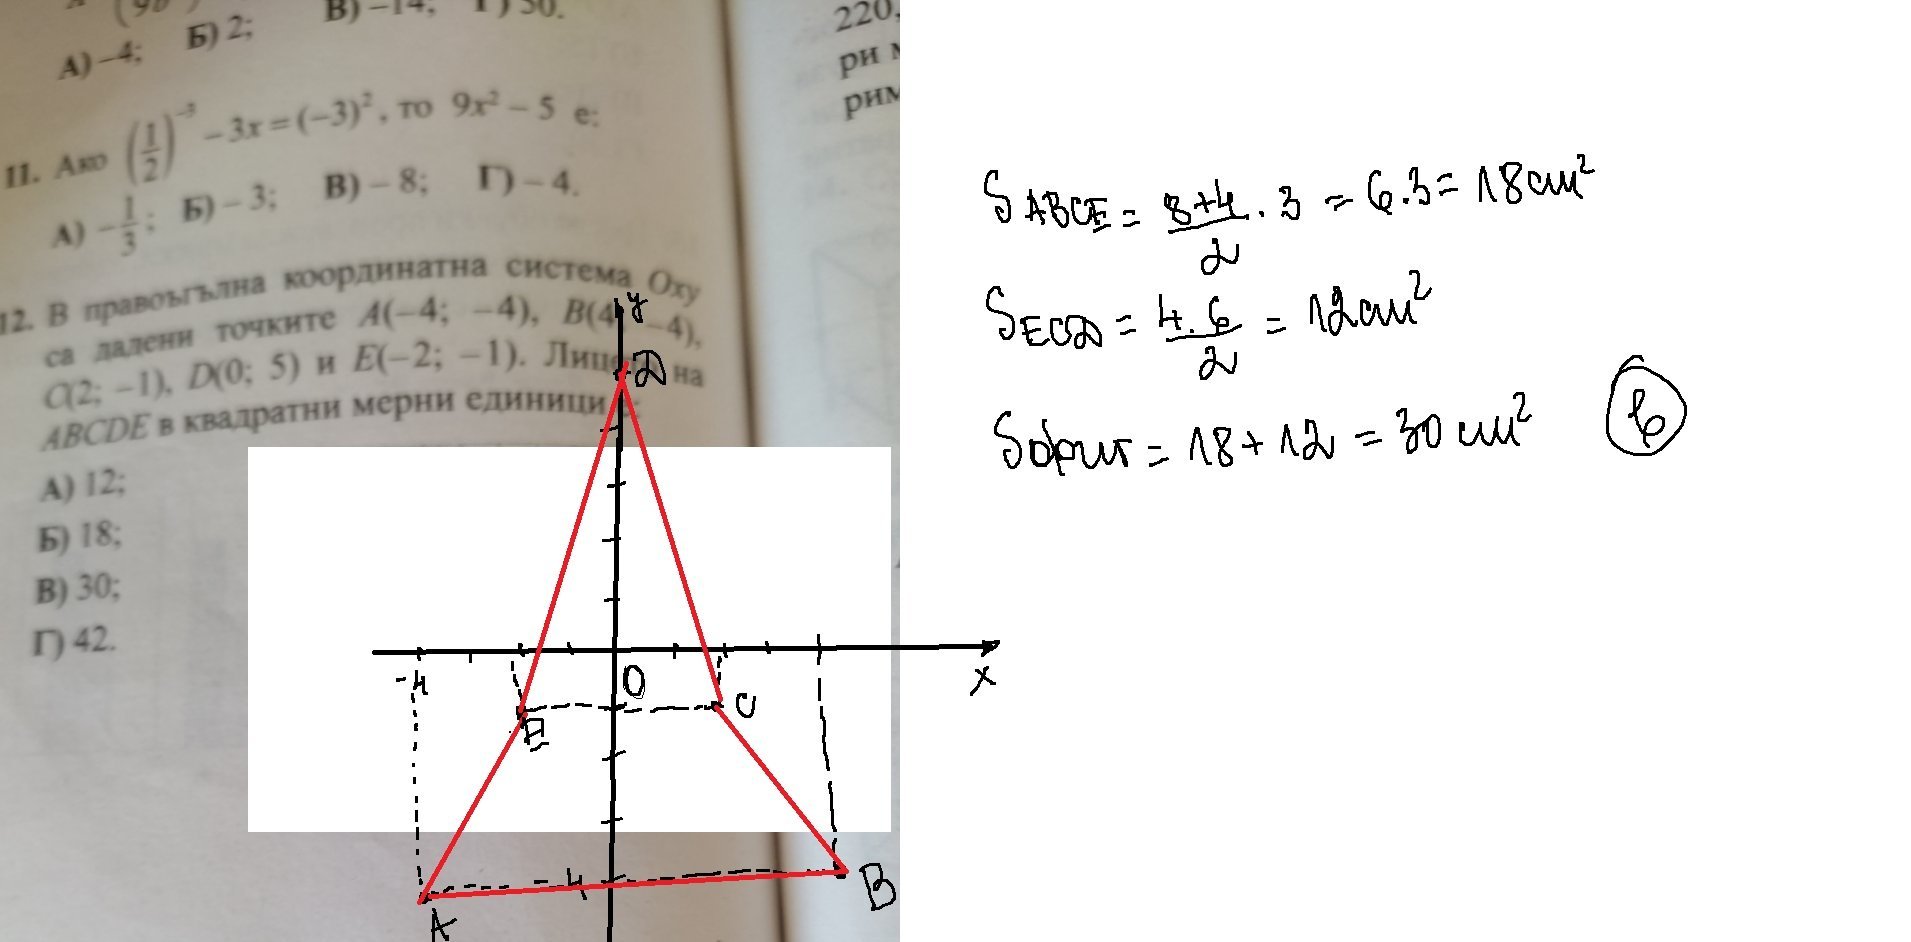 А) –4; Б) 2; В) –14; Г) 50.
11. Ако (1/2)⁻³ – 3x = (–3)², то 9x² – 5 е:
А) –1/3; Б) – 3; В) – 8; Г) – 4.
12. В правоъгълна координатна система Oxy
са дадени точките A(–4; –4), B(4; –4),
C(2; –1), D(0; 5) и E(–2; –1). Лицето на
ABCDE в квадратни мерни единици е:
А) 12;
Б) 18;
В) 30;
Г) 42.
220,
ри
рим
y
D
-4
O
x
E
C
4
A
B
S ABCE = 8+4/2 . 3 = 6.3 = 18 cm²
S ECD = 4.6/2 = 12 cm²
Sфиг = 18 + 12 = 30 cm² В